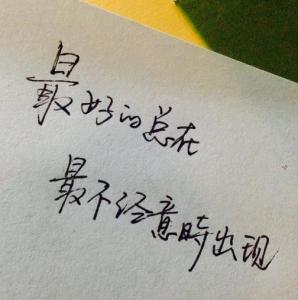 最好的总在
最不经意時出现